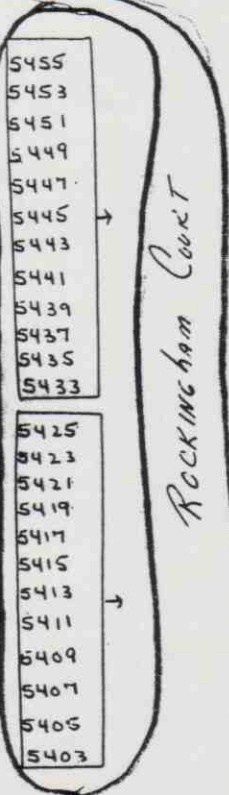 5455
5453
5451
5449
5447
5445
5443
5441
5439
5437
5435
5433
5425
5423
5421
5419
5417
5415
5413
5411
5409
5407
5405
5403
ROCKINGHAM COURT